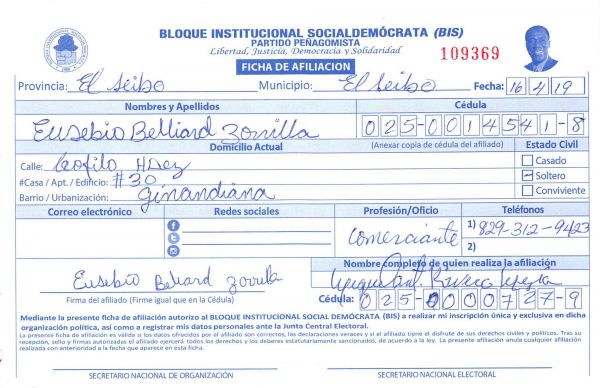 BLOQUE INSTITUCIONAL SOCIALDEMÓCRATA (BIS)
PARTIDO PEÑAGOMISTA
Libertad, Justicia, Democracia y Solidaridad
109369
FICHA DE AFILIACION
Provincia: El Seibo Municipio: El Seibo Fecha: 16/4/19
Nombres y Apellidos Cédula
Eusebio Belliard Zorrilla 025-0014541-8
Domicilio Actual (Anexar copia de cédula del afiliado) Estado Civil
Calle: Teofilo Hdez Casado
#Casa / Apt. / Edificio: #30 Soltero
Barrio / Urbanización: Ginandiana Conviviente
Correo electrónico Redes sociales Profesión/Oficio Teléfonos
Comerciante 1) 829-312-9423
2)
Nombre completo de quien realiza la afiliación
Eusebio Belliard Zorrilla
Firma del afiliado (Firme igual que en la Cédula) Cédula: 025-0000727-9
Mediante la presente ficha de afiliación autorizo al BLOQUE INSTITUCIONAL SOCIAL DEMÓCRATA (BIS) a realizar mi inscripción única y exclusiva en dicha
organización política, así como a registrar mis datos personales ante la Junta Central Electoral.
La presente ficha de afiliación es válida si los datos ofrecidos por el afiliado son correctos, las declaraciones veraces y si el afiliado tiene el disfrute de sus derechos civiles y políticos. Tras su
recepción, sello y firmas autorizadas el afiliado ejercerá todos los derechos y los deberes estatutariamente sancionados, de acuerdo a la ley. La presente afiliación anula cualquier afiliación
realizada con anterioridad a la fecha que aparece en esta ficha.
SECRETARIO NACIONAL DE ORGANIZACIÓN SECRETARIO NACIONAL ELECTORAL